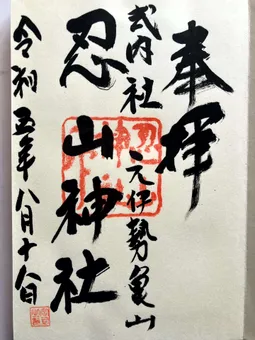 奉拝
式内社 元伊勢亀山
忍山神社
令和五年八月十八日